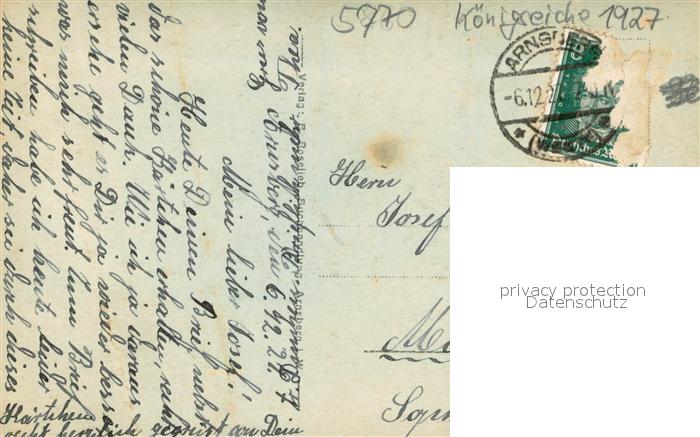 5770 Königreiche 1927
ARNSBERG
-6.12.2
(WESTF)
Verlag: Buchhandlung Arnsberg i. W.
Arnsberg, den 6.12.27
Mein lieber Josef!
Heute Deinen Brief nebst
das schöne Kärtchen erhalten,
vielen Dank. Wie ich ja daraus
ersehe geht es Dir ja wieder besser
was mich sehr freut. Zum Brief
schreiben habe ich heute leider
keine Zeit, daher sei durch dieses
Kärtchen
recht herzlich gegrüßt von Dein
Herrn
Josef
privacy protection
Datenschutz